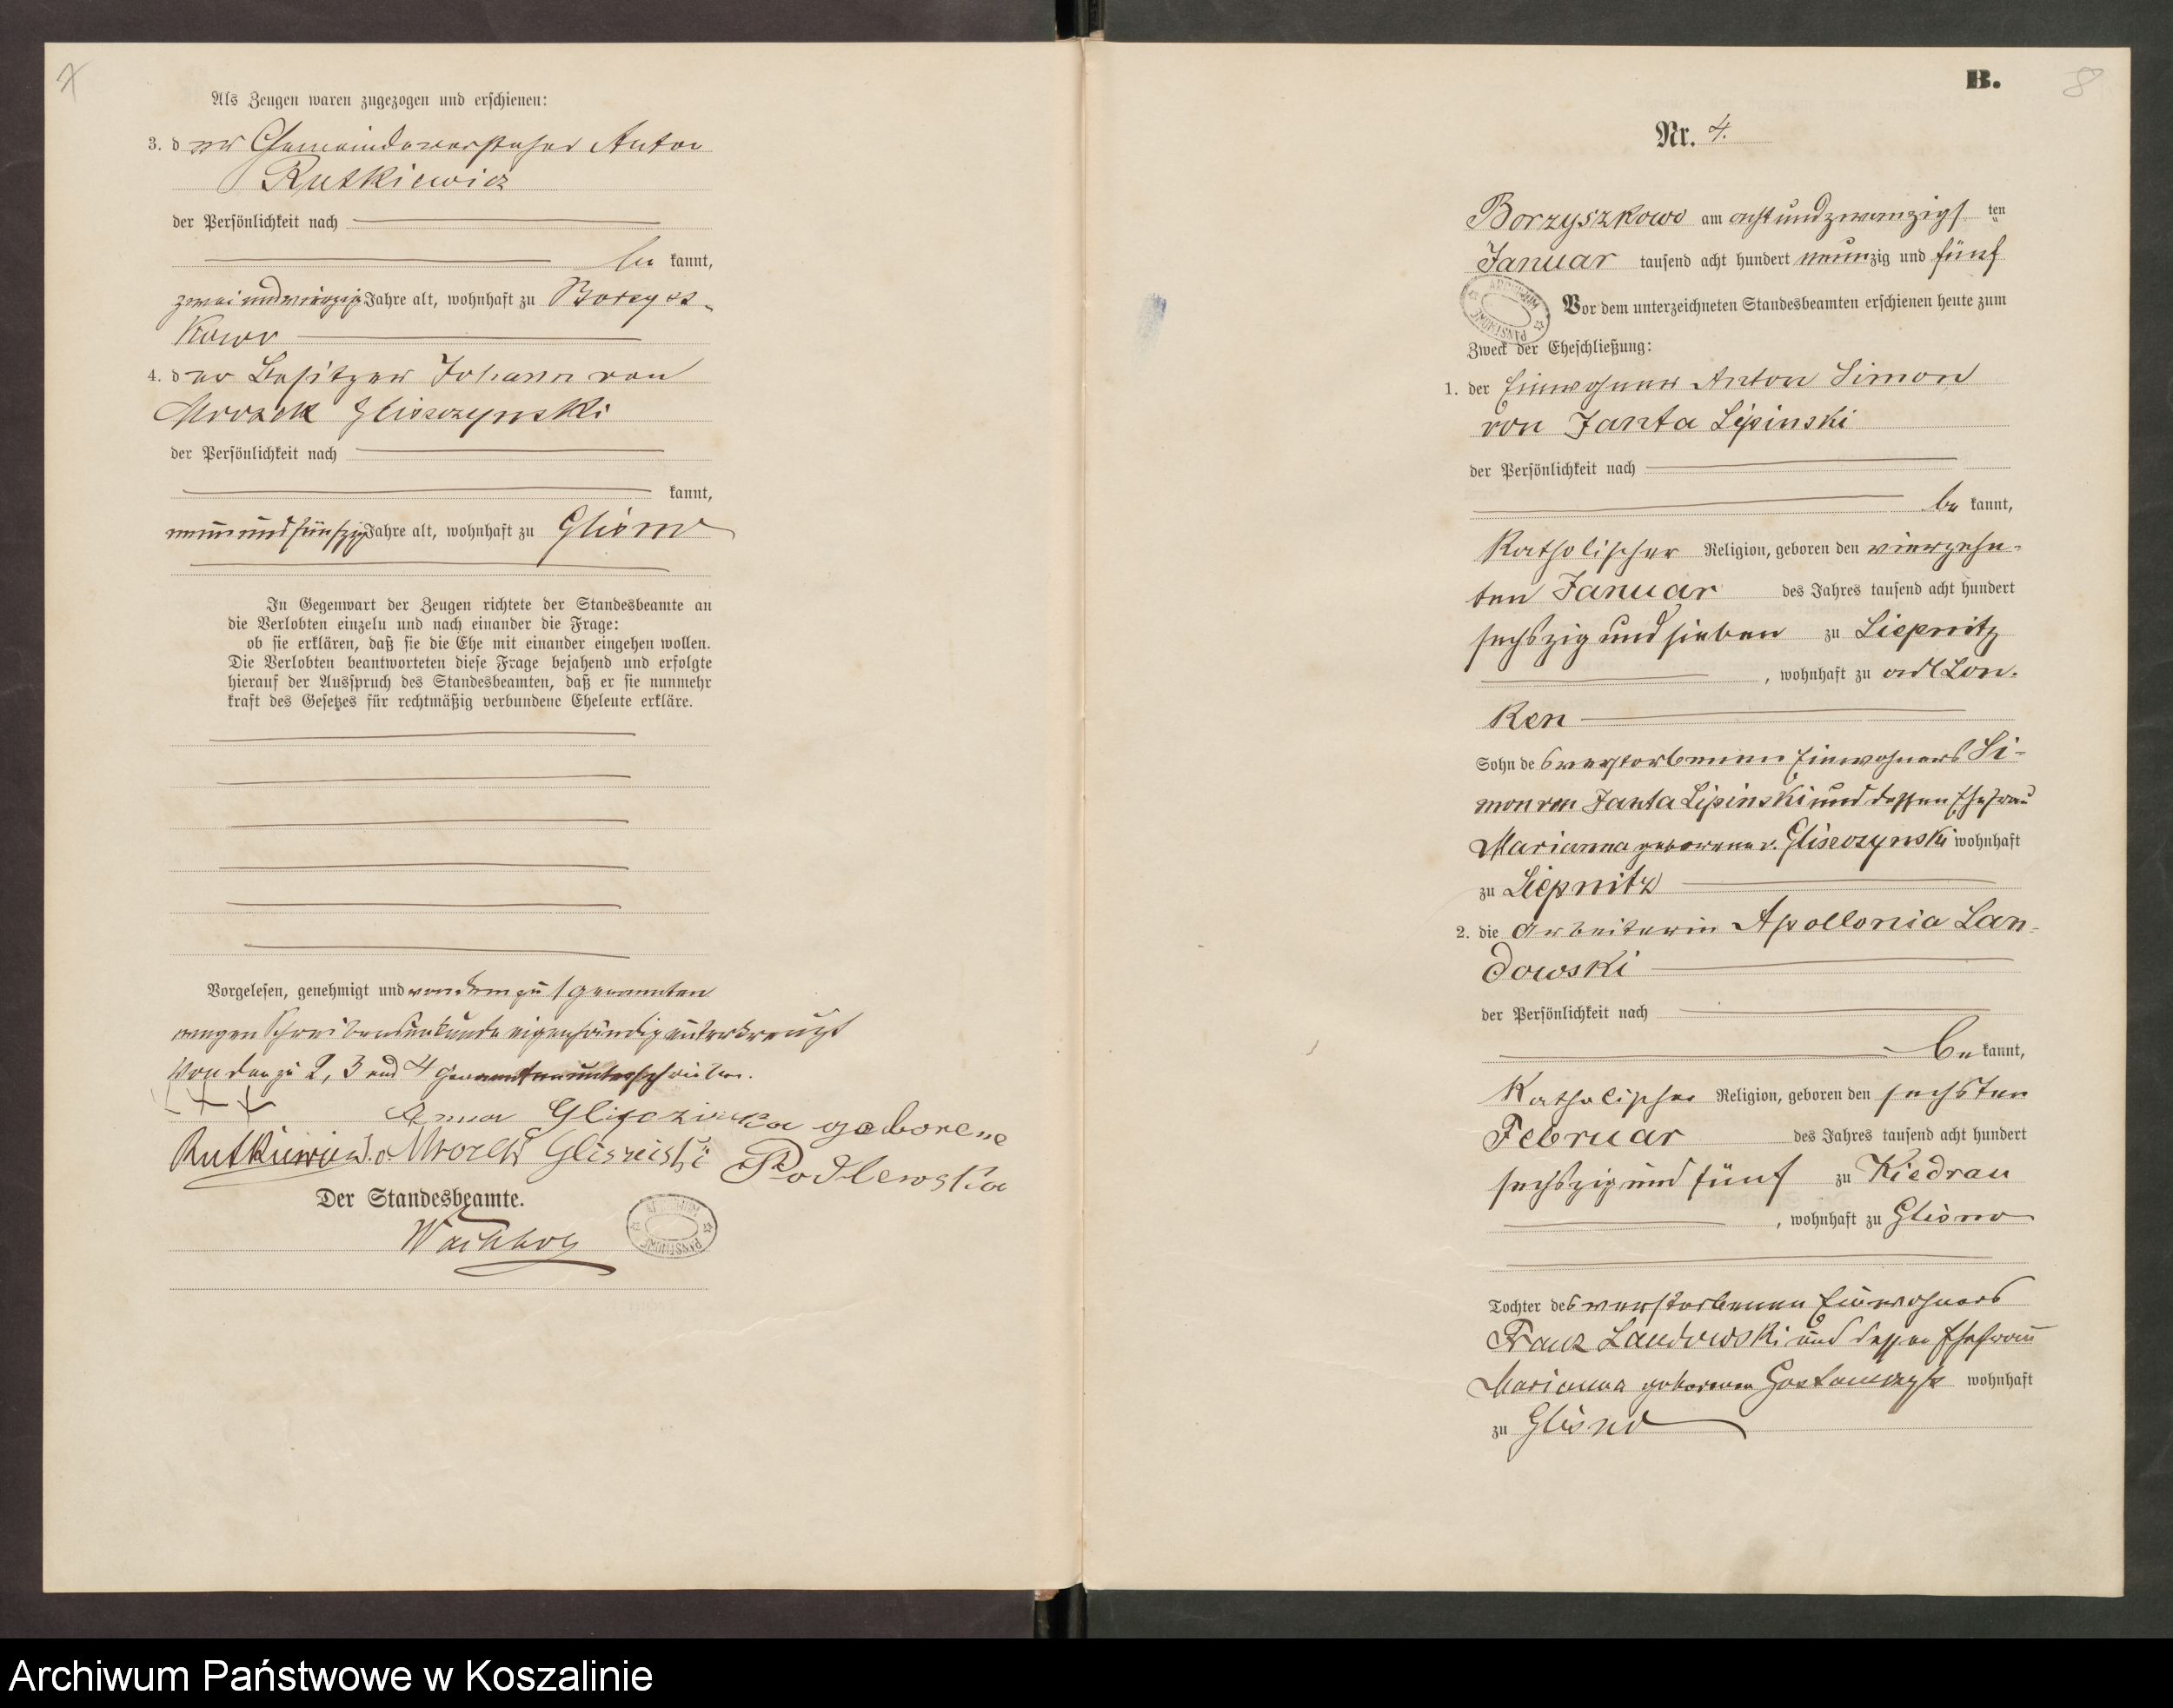 7
Als Zeugen waren zugezogen und erschienen:
3. der Gemeindevorsteher Anton
Rutkiewicz
der Persönlichkeit nach
be kannt,
zweiundvierzig Jahre alt, wohnhaft zu Borzysz-
kowo
4. der Besitzer Johann von
Mrozek Glisczynski
der Persönlichkeit nach
kannt,
neunundfünfzig Jahre alt, wohnhaft zu Glisno
In Gegenwart der Zeugen richtete der Standesbeamte an
die Verlobten einzeln und nach einander die Frage:
ob sie erklären, daß sie die Ehe mit einander eingehen wollen.
Die Verlobten beantworteten diese Frage bejahend und erfolgte
hierauf der Ausspruch des Standesbeamten, daß er sie nunmehr
kraft des Gesetzes für rechtmäßig verbundene Eheleute erkläre.
Vorgelesen, genehmigt und von dem zu 1 genannten
wegen Schreibensunkunde eigenhändig unterkreuzt
Von den zu 2, 3 und 4 genannten unterschrieben.
+ + +
Anna Gliszczinska geborene
Rutkiewicz J. v. Mrozek Gliszciski Podlewska
Der Standesbeamte.
ARCHIWUM PAŃSTWOWE
B.
8
Nr. 4.
Borzyszkowo am achtundzwanzigs ten
Januar tausend acht hundert neunzig und fünf
ARCHIWUM PAŃSTWOWE
Vor dem unterzeichneten Standesbeamten erschienen heute zum
Zweck der Eheschließung:
1. der Einwohner Anton Simon
von Janta Lipinski
der Persönlichkeit nach
be kannt,
Katholischer Religion, geboren den vierzehn-
ten Januar des Jahres tausend acht hundert
sechszig und sieben zu Liepnitz
, wohnhaft zu adl Lon-
ken
Sohn des verstorbenen Einwohners Si-
mon von Janta Lipinski und dessen Ehefrau
Marianna geborene v. Glisczynski wohnhaft
zu Liepnitz
2. die Arbeiterin Apollonia Lan-
dowski
der Persönlichkeit nach
be kannt,
Katholischer Religion, geboren den sechsten
Februar des Jahres tausend acht hundert
sechszig und fünf zu Kiedrau
, wohnhaft zu Glisno
Tochter des verstorbenen Einwohners
Franz Landowski und dessen Ehefrau
Marianna geborene wohnhaft
zu Glisno
Archiwum Państwowe w Koszalinie